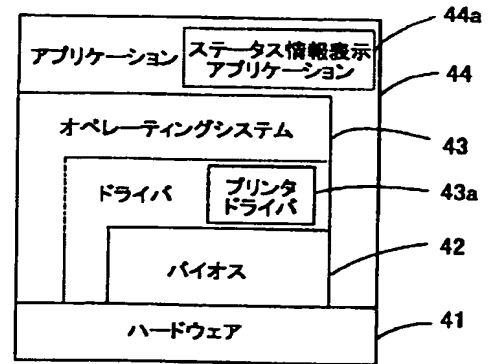 アプリケーション
ステータス情報表示
アプリケーション
44a
44
オペレーティングシステム
43
ドライバ
プリンタ
ドライバ
43a
バイオス
42
ハードウェア
41